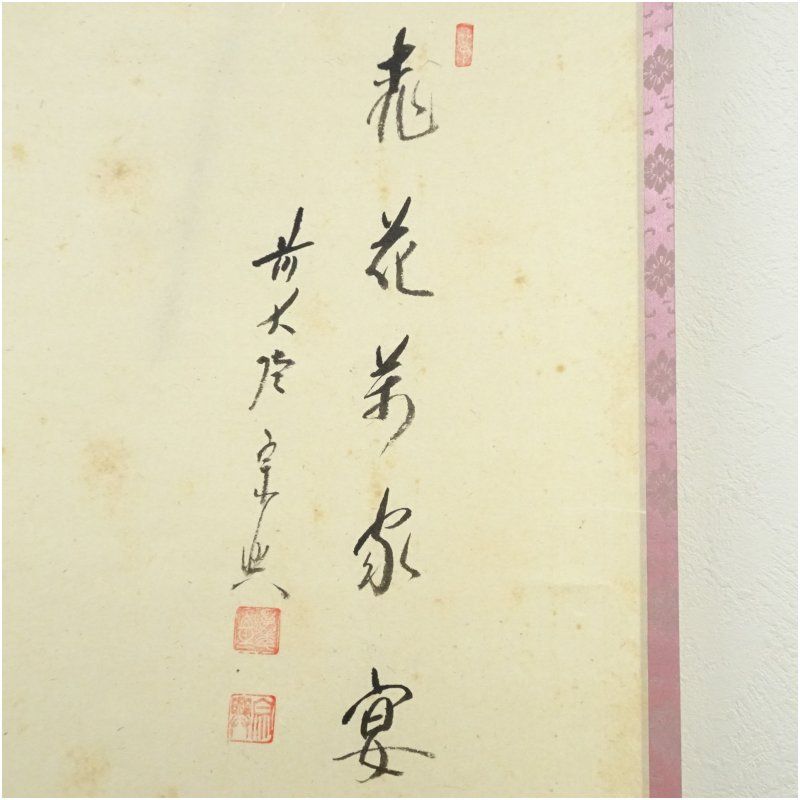 飛花萬家宴
前大徳宗興